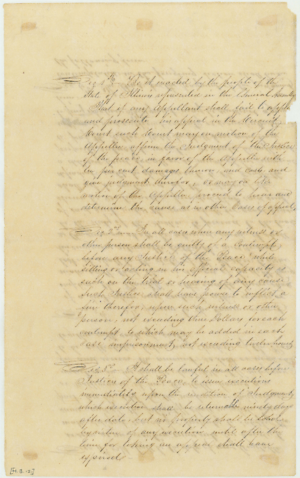 Be it enacted by the people of the
State of Illinois represented in the General Assembly
That if any Appellant shall fail to appear
and prosecute his appeal in the Circuit
Court such Court may on motion of the
Appellee affirm the Judgment of the Justice
of the peace in favor of the Appellee with
ten per cent damages thereon and costs and
give judgment therefor, or may on like
motion of the Appellee proceed to hear and
determine the cause as in other cases of appeal
In all cases when any
other person shall be guilty of a Contempt
before any Justice of the Peace while
sitting or acting in his official capacity
such on the trial or hearing of any cause
such Justice shall have power to inflict a
fine therefor upon such or other
person, not exceeding three dollars for each
contempt to which may be added in each
case imprisonment, not exceeding
It shall be lawful in all cases before
Justices of the Peace to issue executions
immediately upon the rendition of Judgment,
which execution shall be returnable ninety days
after date, but no property shall be
execution of any execution until after the
time for taking an appeal shall have
expired